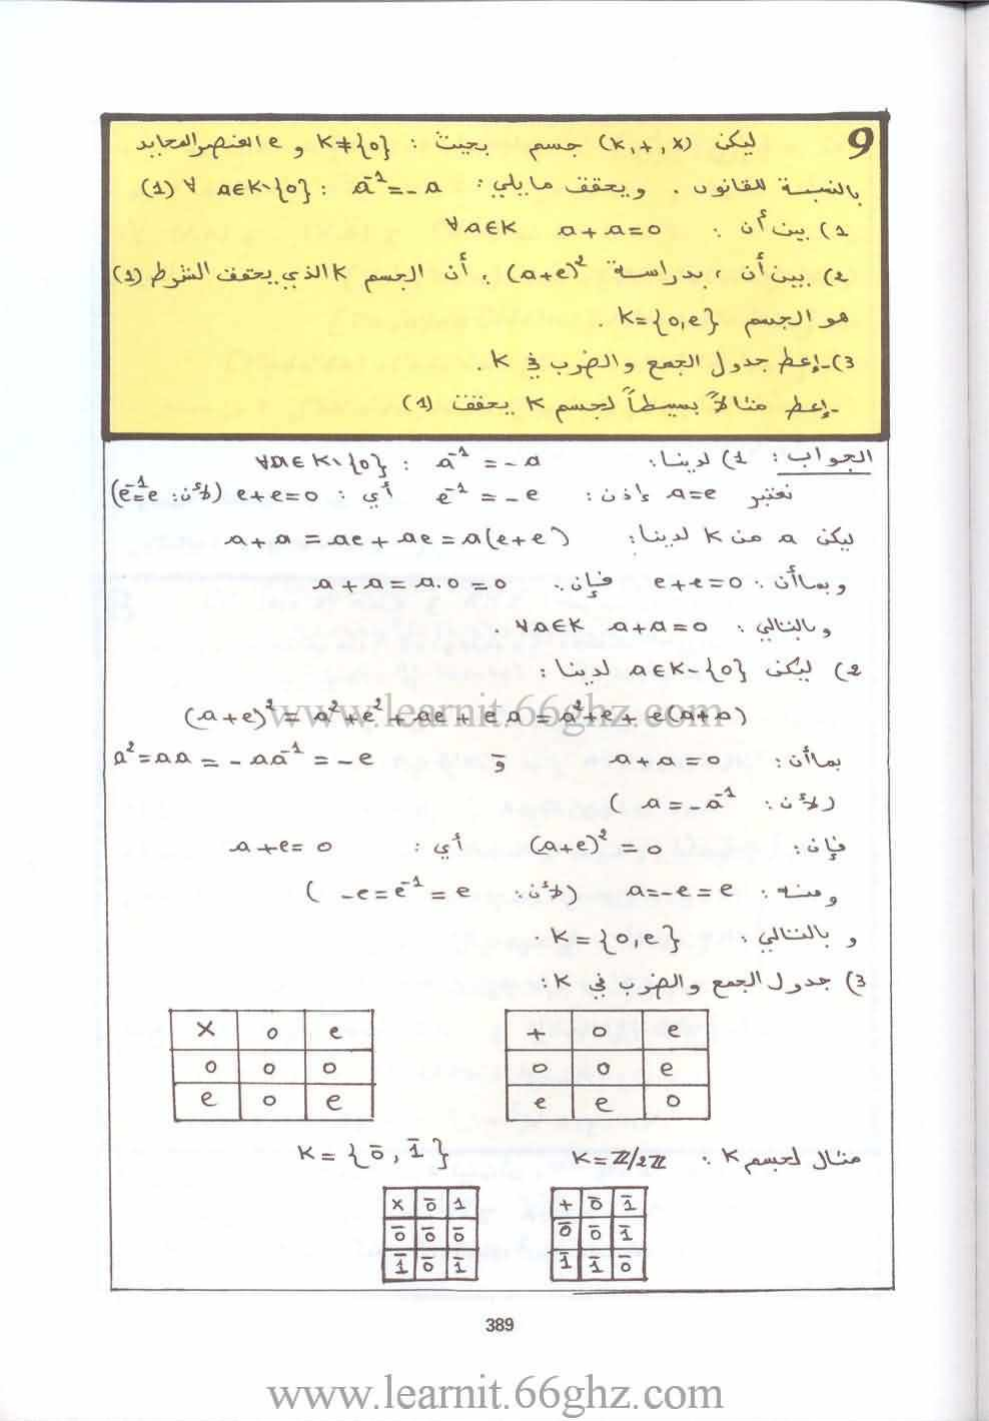 9 ليكن (K,+,x) جسم بحيث : K≠{0} و e العنصر المحايد
بالنسبة للقانون . ويحقق مايلي : (1) ∀ a∈K\{0} : a⁻¹=-a
1) بين أن : ∀a∈K a+a=0
2) بين أن ، بدراسة (a+e)² ، أن الجسم K الذي يحقق الشرط (1)
هو الجسم K={0,e} .
3)-إعط جدول الجمع والضرب في K .
-إعط مثالاً بسيطاً لجسم K يحقق (1)
الجواب : 1) لدينا: ∀a∈K\{0} : a⁻¹ = -a
نعتبر a=e إذن : e⁻¹ = -e أي : e+e=0 (لأن: e⁻¹=e)
ليكن a من K لدينا: a+a = ae+ae = a(e+e)
وبما أن : e+e=0 فإن : a+a=a.0=0
وبالتالي : ∀a∈K a+a=0 .
2) ليكن a∈K-{0} لدينا :
(a+e)² = a²+e²+ae+ea = a²+e+e(a+a)
بما أن : a+a=0 و a²=aa=-aa⁻¹=-e
(لأن : a=-a⁻¹)
فإن : (a+e)²=0 أي : a+e=0
ومنه : a=-e=e (لأن : -e=e⁻¹=e)
و بالتالي : K={0,e} .
3) جدول الجمع والضرب في K :
+ 0 e
0 0 e
e e 0
x 0 e
0 0 0
e 0 e
مثال لجسم K : K=ℤ/2ℤ K={0̄,1̄}
+ 0̄ 1̄
0̄ 0̄ 1̄
1̄ 1̄ 0̄
x 0̄ 1
0̄ 0̄ 0̄
1̄ 0̄ 1̄
www.learnit.66ghz.com
389
www.learnit.66ghz.com